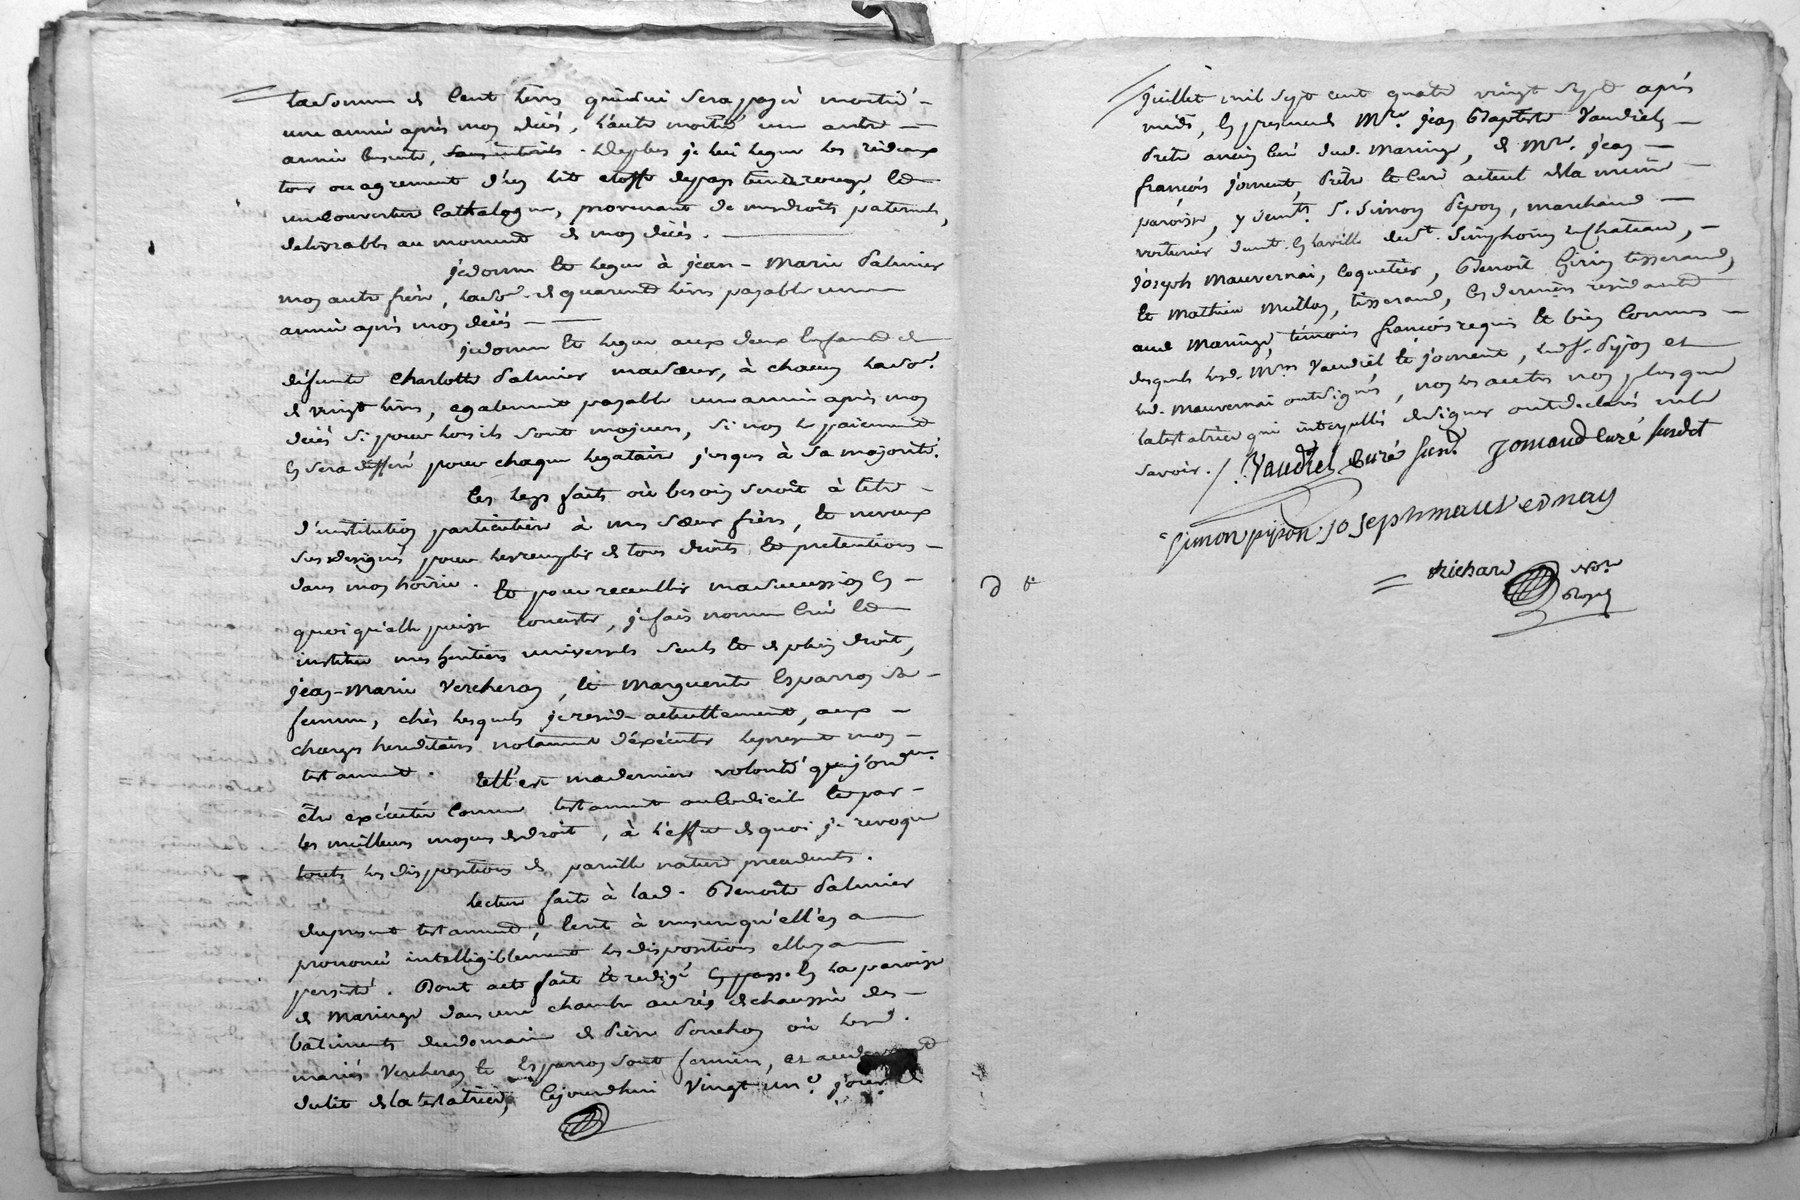 lasomme de Cent livres qui lui sera payé moitié -
une année après mon décès, l'autre moitié une autre -
année ensuite, sans interets. Deplus je lui legue les rideaux
tour ou agrement d'un lit etoffe depays teinte rouge, et
une couverture Cathalogne, provenant de mes droits paternels,
delivrable au moment de mon décès.
je donne et legue à jean-Marie Palmier
mon autre frère, laso.e de quarante livres payable une
année après mon décès
je donne et legue aux deux Enfants de
défunte Charlotte Palmier ma sœur, à chacun laso.e
de vingt livres, egalement payable une année après mon
décès si pour lors ils sont majeurs, si non le paiement
En sera differé pour chaque legataire jusqu'à sa majorité.
Ces legs faits où besoin seroit à titre -
d'institution particulière à mes sœur frères, et neveux
susdesignés pour les remplir de tous droits et pretentions -
dans mon hoirie. Et pour recueillir ma succession En -
quoi qu'elle puisse consister, je fais nomme Créé et
institue mes heritiers universels seuls et de plein droit,
jean-Marie Vercheron, et Marguerite Esparron sa -
femme, chès lesquels je reside actuellement, aux -
charges hereditaires notamment d'éxécuter le present mon -
testament. Tell'est ma derniere volonté que j'ord.
être exécutée comme testament ou Codicile et par -
les meilleurs moyens de droit, à l'effet de quoi je revoque
toutes les dispositions de pareille nature precedentes.
Lecture faite à lad. Benoîte Palmier
du present testament, Ecrit à mesure qu'ell'en a
prononcé intelligiblement les dispositions elle y a
persisté. Dont acte fait et redigé En la paroisse
de Maringe dans une chambre au rés de chaussée des -
bâtiments du domaine de Pierre Ponchon où lesd.
mariés Vercheron et Esparron sont fermiers, et audevant
du lit de la testatrice, Cejourd'hui Vingt un.e jour de
juillet mil sept cent quatre vingt sept après
midi, En presence de Mre. jean Baptiste Vaudiel -
Prêtre ancien Curé dud. Maringe, de Mre. jean -
françois jomand, Prêtre et Curé actuel de la même -
paroisse, y demts. S. Simon Pipon, marchand -
voiturier demt. En la ville de St. Simphorien le Chateau, -
joseph Mauvernai, Coquetier, Benoît Girin tisserand,
et Mathieu Millon, tisserand, les derniers résidants
aud Maringe, témoins françois requis et bien Connus -
desquels lesd. Mres Vaudiel et jomand, led. s. Pipon et
led. Mauvernai ont signés, non les autres non plus que
la testatrice qui interpellés de signer ont declarés ne le
savoir. /. Vaudiel Curé Jomand Curé susdit
Simon pipon joseph mauvernay
Richard